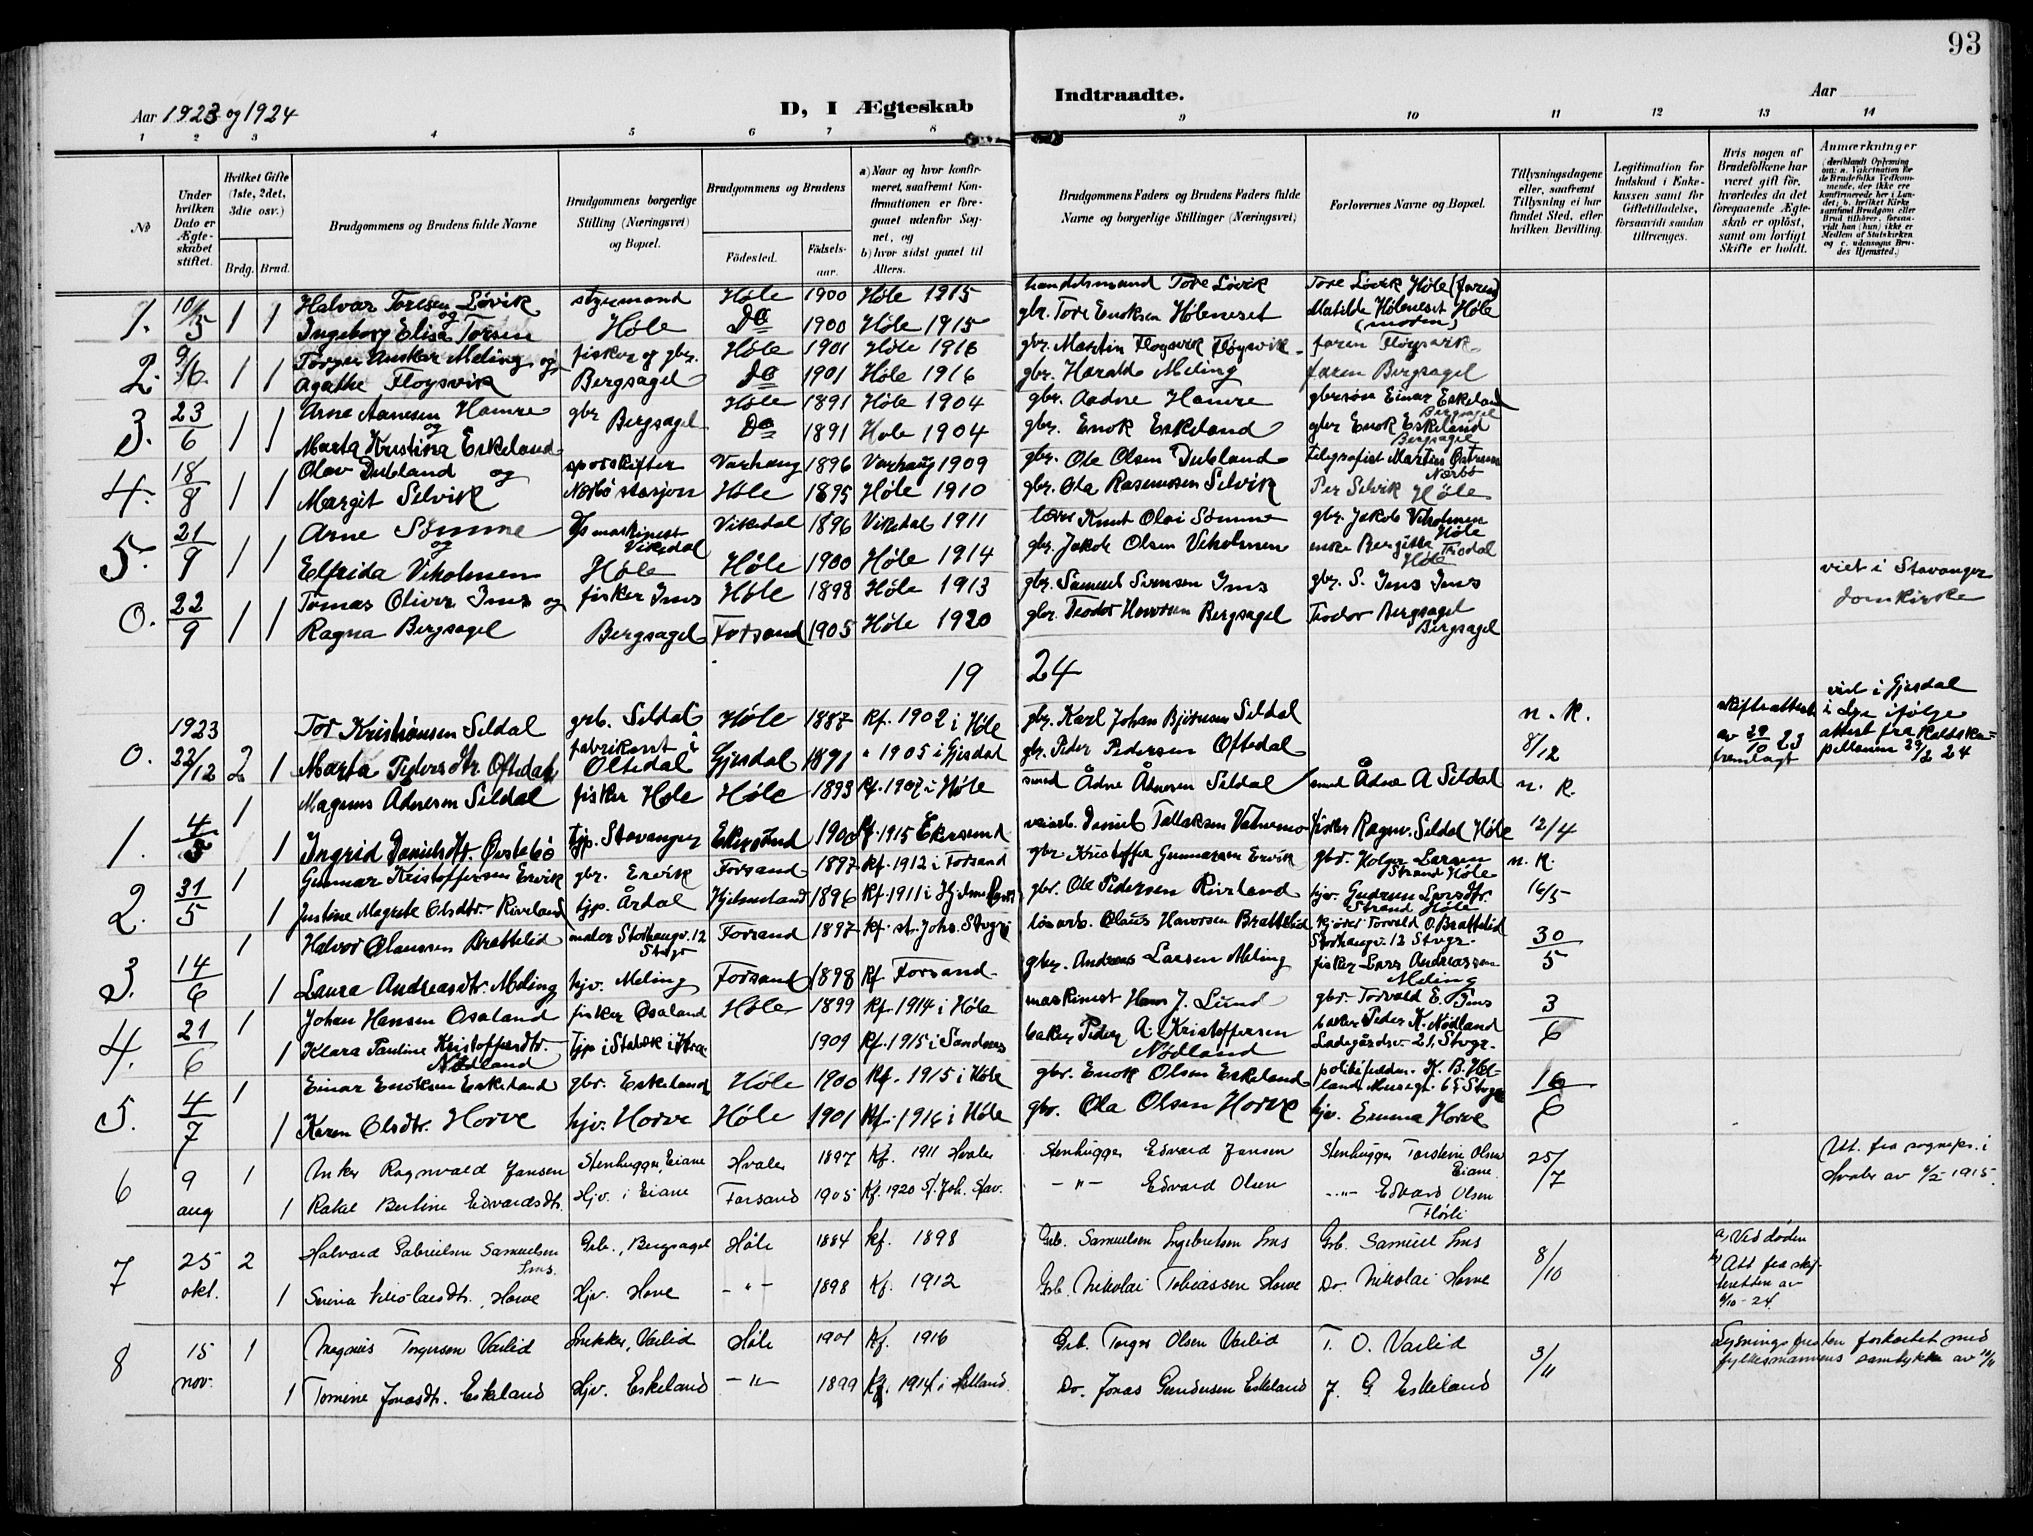 93
Aar 1923 og 1924
D, I Ægteskab
Indtraadte.
Aar
1 2 3 4 5 6 7 8 9 10 11 12 13 14
No
Under hvilken Dato er Ægteskabet stiftet.
Hvilket Gifte (1ste, 2det, 3die osv.)
Brdg. Brud.
Brudgommens og Brudens fulde Navne
Brudgommens borgerlige Stilling (Næringsvei) og Bopæl.
Brudgommens og Brudens
Fødested. Fødselsaar.
a) Naar og hvor konfirmeret, saafremt Konfirmationen er foregaaet udenfor Sognet, og
b) hvor sidst gaaet til Alters.
Brudgommens Faders og Brudens Faders fulde Navne og borgerlige Stillinger (Næringsvei)
Forlovernes Navne og Bopæl.
Tillysningsdagene eller, saafremt Tillysning ei har fundet Sted, efter hvilken Bevilling.
Legitimation for Indskud i Enkekassen samt for Giftetilladelse, forsaavidt saadan tiltrænges.
Hvis nogen af Brudefolkene har været gift før, hvorledes da det foregaaende Ægteskab er opløst, samt om lovligt Skifte er holdt.
Anmærkninger
(deriblandt Oplysning om: a. Vakcination for de Brudefolks Vedkommende, der ikke ere konfirmerede her i Landet; b. hvilket Kirkesamfund Brudgom eller Brud tilhører, forsaavidt han (hun) ikke er Medlem af Statskirken og c. udensogns Brudes Hjemsted.)
1. 10/5 1 1 Halvar Toresen Løvik og styrmand Høle 1900 Høle 1915 handelsmand Tore Løvik Tore Løvik Høle (faren)
Ingeborg Elisa Torsen Høle Do 1900 Høle 1915 gbr. Tore Enoksen Høleneset Matilde Høleneset Høle (moren)
2. 9/6. 1 1 Torger Anskar Meling og fisker og gbr. Høle 1901 Høle 1916 gbr. Martin Floysvik Fløysvik faren Fløysvik
Agathe Floysvik Bergsagel Do 1901 Høle 1916 gbr. Harald Meling faren Bergsagel
3. 23/6 1 1 Arne Aanesen Hamre og gbr Bergsagel Høle 1891 Høle 1904 gbr. Aadne Hamre gbrsøn Einar Eskeland Bergsagel
Marta Kristina Eskeland Do 1891 Høle 1904 gbr. Enok Eskeland gbr Enok Eskeland Bergsagel
4. 18/8 1 1 Olav Dubland og sporskifter Varhaug 1896 Varhaug 1909 gbr. Ole Olsen Dubland telegrafist Martin Nærbø
Margit Selvik Nærbø stasjon Høle 1895 Høle 1910 gbr. Ola Rasmussen Selvik Per Selvik Høle
5. 21/9 1 1 Arne Sømme og maskinest Vikedal Vikedal 1896 Vikedal 1911 Knut Olai Sømme gbr. Jakob Vikholmen Høle
Elfrida Vikholmen Høle Høle 1900 Høle 1914 gbr. Jakob Olsen Vikholmen enke Bergitte Høle
0. 22/9 1 1 Tomas Oliver Ims og fisker Ims Høle 1898 Høle 1913 gbr. Samuel Svensen Ims gbr. S. Ims Ims viet i Stavanger
Ragna Bergsagel Bergsagel Forsand 1905 Høle 1920 gbr. Teodor Bergsagel Teodor Bergsagel Bergsagel domkirke
19 24
0. 1923 22/12 2 Tor Kristiansen Seldal grb. Seldal Høle 1887 kf. 1902 i Høle gbr. Karl Johan Bjørnsen Seldal n. k. skifteattest av 29/10 23 fremlagt viet i Gjesdal
1 Marta Pedersdtr. Oftedal fabrikant i Oltedal Gjesdal 1891 " 1905 i Gjesdal gb. Peder Pedersen Oftedal 8/12 ifølge attest fra 24
1. 4/5 1 Magnus Ådnesen Seldal fisker Høle Høle 1893 kf. 1907 i Høle smed Ådne Ådnesen Seldal smed Ådne A Seldal n. k.
1 Ingrid Danielsdtr. Øvstebø tjp. Stavanger Ekersund 1900 kf. 1915 Ekersund Daniel Tollaksen fisker Ragnv. Seldal Høle 12/4
2. 31/5 1 Gunnar Kristoffersen Ervik gbr. Ervik Forsand 1897 kf. 1912 i Forsand gbr Kristoffer Gunnarsen Ervik gbr. Holger Larsen Strand Høle n. k.
1 Justine Magrete Olsdtr. Riveland tjp. Årdal Hjelmeland 1896 kf. 1911 i Hjelmeland gbr. Ole Pedersen Riveland hjv. Gudrun Larsdtr. Strand Høle 16/5
3. 14/6 1 Halvor Olaussen Brattelid maler Storhaugv. 12 Stvgr Forsand 1897 kf. st. Johs. Stvgr løsarb. Olaus Havorsen Brattelid kjører Torvald O. Brattelid Storhaugv. 12 Stvgr. 30/5
1 Laura Andreasdtr. Meling hjv. Meling Forsand 1898 kf Forsand gbr. Andreas Larsen Meling fisker Lars Andreassen Meling
4. 21/6 1 Johan Hansen Osaland fisker Osaland Høle 1899 kf. 1914 i Høle maskinist Hans J. Lund gbr. Torvald E. Ims 3/6
1 Klara Pauline Kristoffersdtr. Nødland tjp i 1909 kf. 1915 i Sandnes baker Peder A. Kristoffersen Nødland baker Peder K. Nødland Ladegårdsv. 21, Stvgr.
5. 4/7 1 Einar Enoksen Eskeland gbr. Eskeland Høle 1900 kf. 1915 i Høle gbr. Enok Olsen Eskeland politifuldm. K. B. Helland Museg. 65 Stvgr 16/6
1 Karen Olsdtr. Horve hjv. Horve Høle 1901 kf. 1916 i Høle gbr. Ola Olsen Horve hjv. Emma Horve
6 9 aug 1 Anker Ragnvald Jansen Stenhugger, Eiane Hvaler 1897 kf. 1911 Hvaler Stenhugger Edvard Jansen Stenhugger Torstein Olsen Eiane 25/7 Utt. fra sognepr. i
1 Rakel Bertine Edvardsdtr. Hjv. i Eiane Forsand 1905 Kf. 1920 St. Joh. Stav. - " - Edvard Olsen - " - Edvard Olsen Fløsli Hvaler av 1915.
7 25 okt. 2 Halvard Gabrielsen Samuelsen Ims. Grb., Bergsagel Høle 1884 kf. 1898 Grb. Samuelsen Ingebretsen Ims Grb. Samuel Ims 8/10 a) Ved døden
1 Serina Nikolaisdtr., Horve Hjv. Horve - " - 1898 Kf. 1912 Grb. Nikolai Tobiassen Horve Do. Nikolai Horve b) Att fra skifteretten av 6/10-24.
8 15 nov. 1 Magnus Torgersen Varlid Snekker, Varlid Høle 1901 Kf. 1916 Grb. Torger Olsen Varlid T. O. Varlid 3/11 Lysningsfristen forkortet med
1 Tomine Jonasdtr. Eskeland Hjv. Eskeland - " - 1899 Kf. 1914 i Do. Jonas Gundersen Eskeland J. G. Eskeland fylkesmannens samtykke av